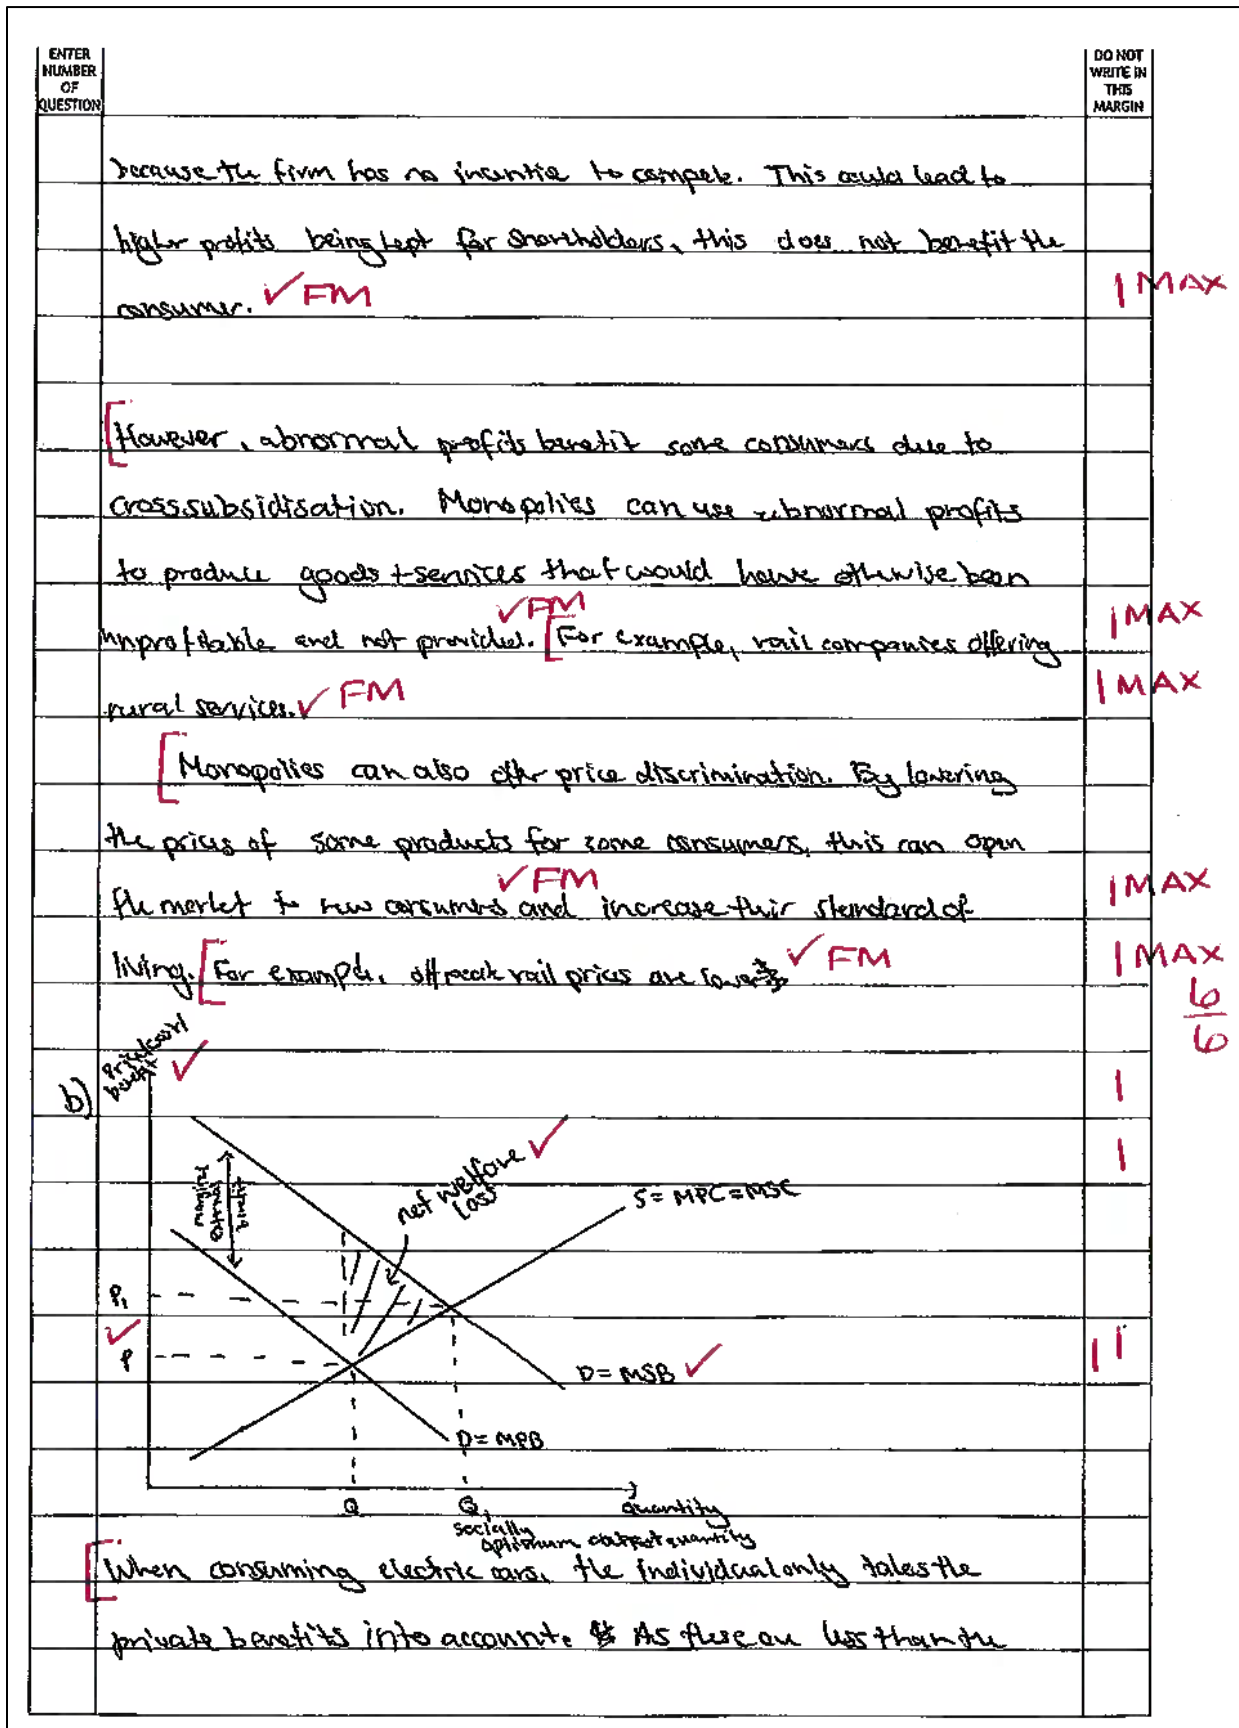 ENTER
NUMBER
OF
QUESTION
DO NOT
WRITE IN
THIS
MARGIN
because the firm has no incentive to compete. This could lead to
higher profits being kept for shareholders, this does not benefit the
consumer. ✓ FM 1 MAX
However, abnormal profits benefit some consumers due to
cross subsidisation. Monopolies can use abnormal profits
to produce goods + services that would have othwise been
unprofitable and not provided. ✓ FM [For example, rail companies offering 1 MAX
rural services. ✓ FM 1 MAX
[Monopolies can also offer price discrimination. By lowering
the prices of some products for some consumers, this can open
the market to new consumers ✓ FM and increase their standard of 1 MAX
living. [For example, off peak rail prices are lower ✓ FM 1 MAX
6
6
b)
benefit ✓ 1
net welfare ✓ 1
loss
marginal
external
benefit
S = MPC = MSC
P₁
✓
P
1 1
D = MSB ✓
D = MPB
Q
Q₁
quantity
socially
optimum output quantity
[When consuming electric cars, the individual only takes the
private benefits into account. As these are less than the